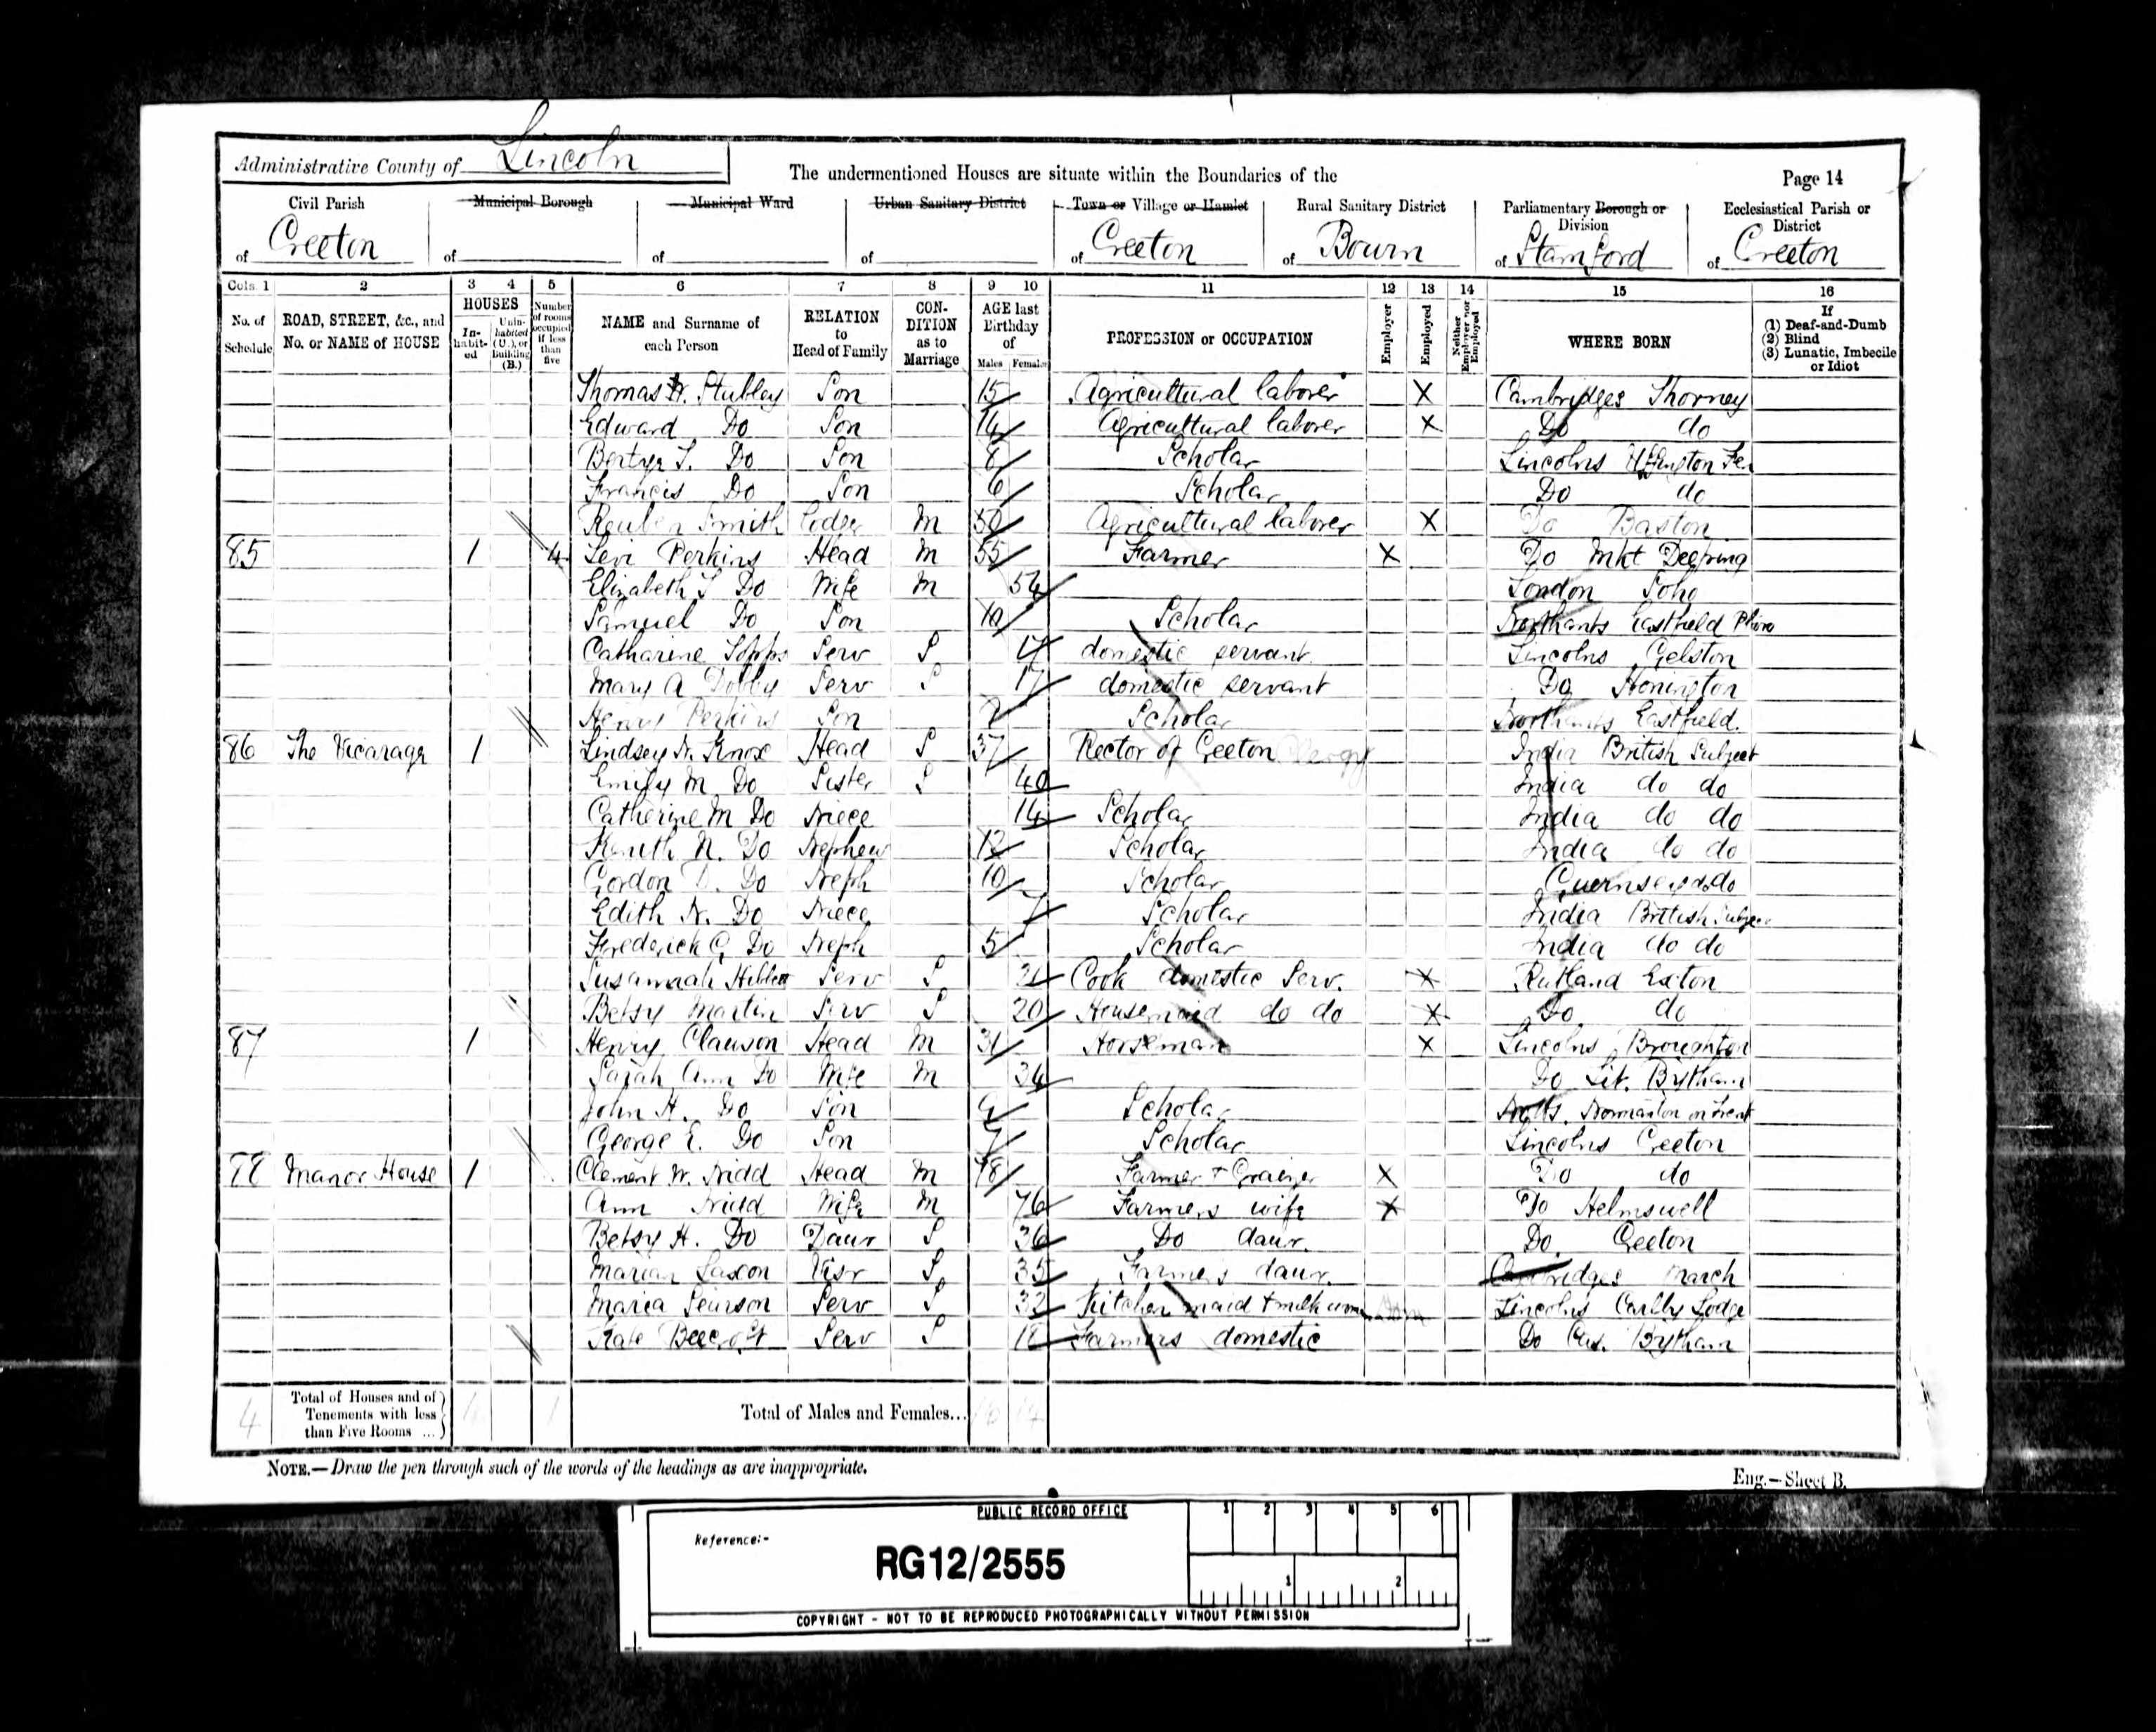 Administrative County of Lincoln
The undermentioned Houses are situate within the Boundaries of the
Page 14
Civil Parish Municipal Borough Municipal Ward Urban Sanitary District Town or Village or Hamlet Rural Sanitary District Parliamentary Borough or Division Ecclesiastical Parish or District
of Creeton of of of of Creeton of Bourn of Stamford of Creeton
Cols. 1 2 3 4 5 6 7 8 9 10 11 12 13 14 15 16
No. of Schedule ROAD, STREET, &c., and No. or NAME of HOUSE HOUSES Inhabited Uninhabited (U.), or Building (B.) Number of rooms occupied if less than five NAME and Surname of each Person RELATION to Head of Family CONDITION as to Marriage AGE last Birthday of Males Females PROFESSION or OCCUPATION Employer Employed Neither Employer nor Employed WHERE BORN If (1) Deaf-and-Dumb (2) Blind (3) Lunatic, Imbecile or Idiot
Thomas W. Stubley Son 15 Agricultural laborer X Cambridges Thorney
Edward Do Son 14 Agricultural laborer X Do do
T. Do Son 8 Scholar Lincolns Uffington
Francis Do Son 6 Scholar Do do
Reuben Smith Lodger M 50 Agricultural laborer X Do Baston
85 1 4 Levi Perkins Head M 55 Farmer X Do Mkt Deeping
Elizabeth S Do Wife M 54 London Soho
Samuel Do Son 10 Scholar Northants Eastfield
Catharine Serv S 17 domestic servant Lincolns Gelston
Mary A Serv S 17 domestic servant Do Honington
Henry Perkins Son 7 Scholar Northants Eastfield.
86 The Vicarage 1 Lindsey N. Knox Head S 37 Rector of Creeton Clergy India British Subject
Emily M Do Sister S 40 India do do
Catherine M Do Niece 14 Scholar India do do
N. Do Nephew 12 Scholar India do do
Gordon D. Do Neph 10 Scholar Guernsey do do
Edith N. Do Niece 7 Scholar India British Subject
Frederick C. Do Neph 5 Scholar India do do
Susannah Serv S 31 Cook domestic Serv. X Rutland Exton
Betsy Martin Serv S 20 Housemaid do do X Do do
87 1 Henry Clawson Head M 31 Horseman X Lincolns Broughton
Sarah Ann Do Wife M 34 Do Lit. Bytham
John H. Do Son 9 Scholar Notts. Normanton on Trent
George E. Do Son 7 Scholar Lincolns Creeton
88 Manor House 1 Clement W. Nidd Head M 78 Farmer + Graizer X Do do
Ann Nidd Wife M 76 Farmers wife X Do Helmswell
Betsy H. Do Daur S 36 Do daur. Do Creeton
Marian Saxon Visr S 35 Farmers daur. Cambridges March
Maria Pearson Serv S 32 Kitchen maid + milk woman Lincolns Carlby Lodge
Kate Beecroft Serv S 18 Farmers domestic Do Cas. Bytham
4 Total of Houses and of Tenements with less than Five Rooms ... 4 1 Total of Males and Females... 16 14
NOTE.—Draw the pen through such of the words of the headings as are inappropriate.
Eng.—Sheet B.
PUBLIC RECORD OFFICE 1 2 3 4 5 6
Reference:-
RG12/2555
1 2
COPYRIGHT - NOT TO BE REPRODUCED PHOTOGRAPHICALLY WITHOUT PERMISSION